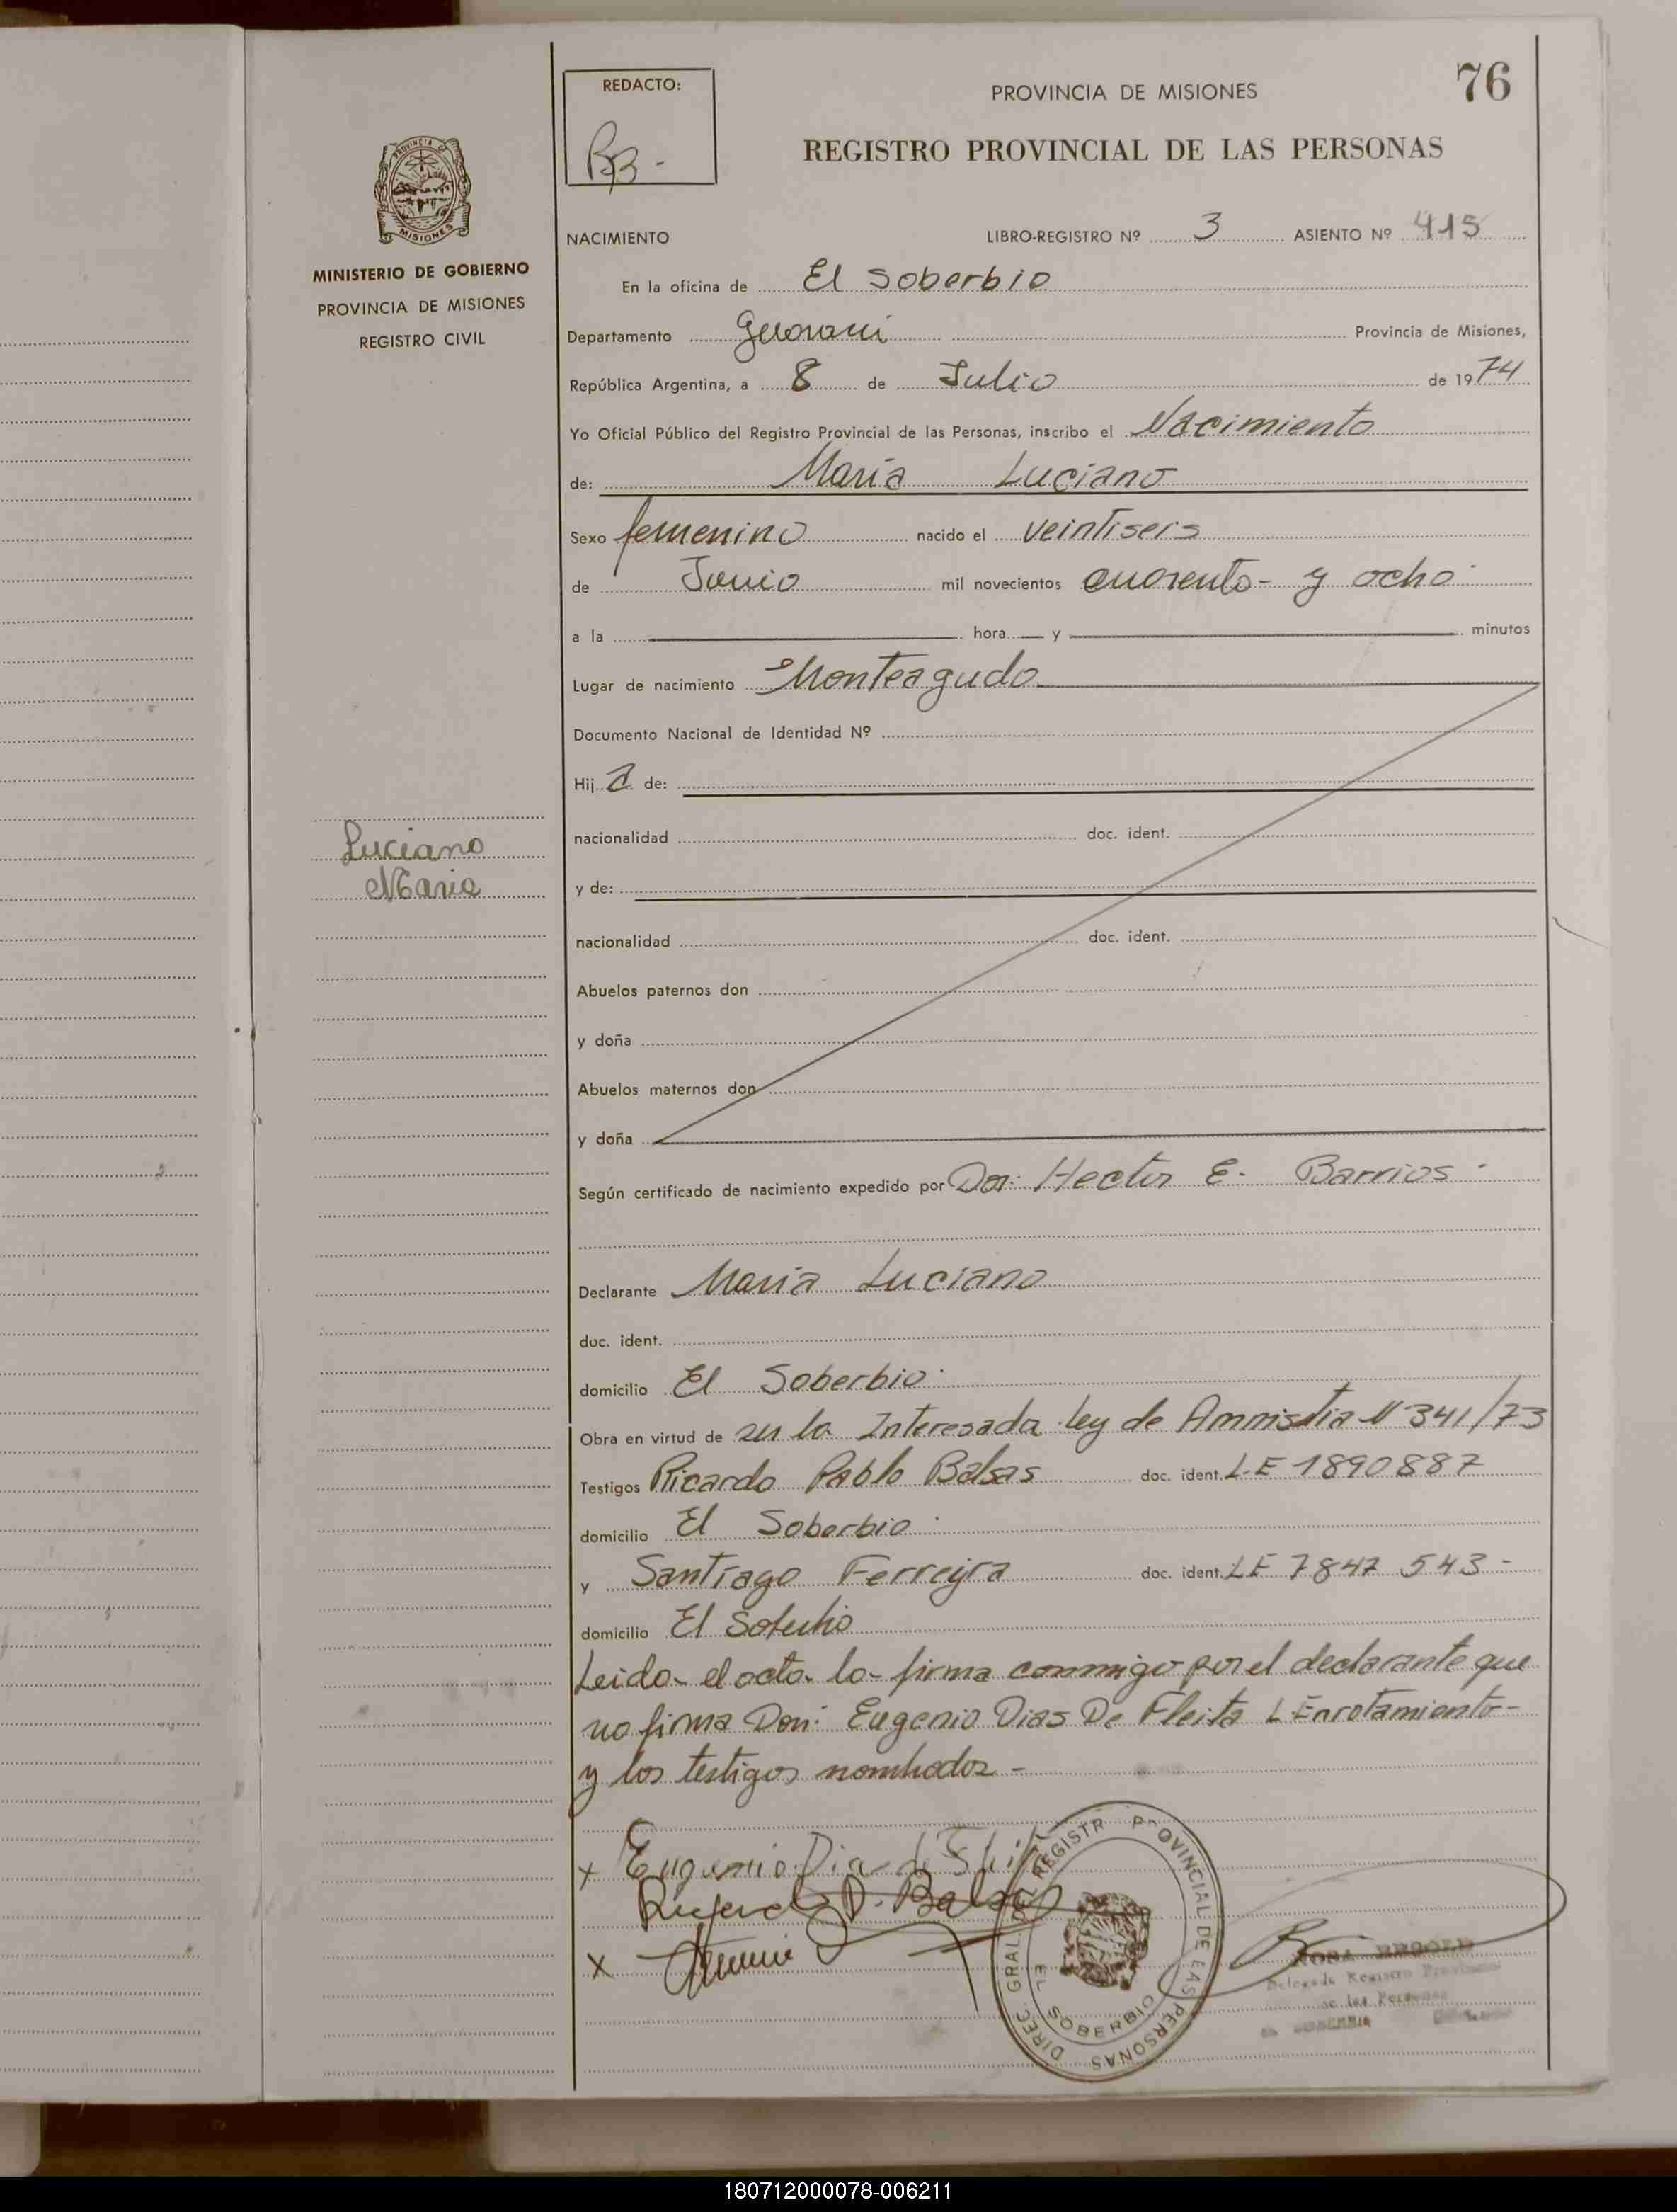 76
REDACTO:
PROVINCIA DE MISIONES
BB -
REGISTRO PROVINCIAL DE LAS PERSONAS
PROVINCIA DE
MISIONES
MINISTERIO DE GOBIERNO
PROVINCIA DE MISIONES
REGISTRO CIVIL
NACIMIENTO LIBRO-REGISTRO Nº 3 ASIENTO Nº 415
En la oficina de El Soberbio
Departamento Guarani Provincia de Misiones,
República Argentina, a 8 de Julio de 1974
Yo Oficial Público del Registro Provincial de las Personas, inscribo el Nacimiento
de: Maria Luciano
Sexo femenino nacido el veintiseis
de Junio mil novecientos cuarenta - y ocho
a la hora y minutos
Lugar de nacimiento Monteagudo
Documento Nacional de Identidad Nº
Hija de:
nacionalidad doc. ident.
Luciano
Maria
y de:
nacionalidad doc. ident.
Abuelos paternos don
y doña
Abuelos maternos don
y doña
Según certificado de nacimiento expedido por Don: Hector E. Barrios -
Declarante Maria Luciano
doc. ident.
domicilio El Soberbio
Obra en virtud de ser la Interesada Ley de Amnistia Nº 341/73
Testigos Ricardo Pablo Balsas doc. ident. L.E 1890887
domicilio El Soberbio
y Santiago Ferreyra doc. ident. LE 7847 543 -
domicilio El Soberbio
Leida el acta la firma conmigo por el declarante que
no firma Don: Eugenio Dias De Fleita L Enrolamiento -
y los testigos nombrados -
x Eugenio Dia
x
DIREC. GRAL. DEL REGISTR PROVINCIAL DE LAS PERSONAS
EL SOBERBIO
ROSA
Delegada Registro Provincial
de las Personas
EL SOBERBIO
180712000078-006211